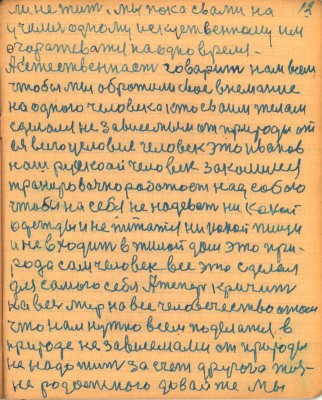 ли не жит. Мы пока с вами на
13
учели одному искуственному им
огораживатся на одно время.
А естественност говарит нам всем
чтобы мы обротили свое внемание
на одного человека кто своим телам
сделался не зависемым от природы от
ея вело условие человек это Иванов
наш руской человек закалился
тренировачно работоет над собою
чтобы на себя не надеват ни какой
одежды и не питатся ни какой пищи
и не входит в жилой дом это при-
рода сам человек все это сделал
для самого себя А теперь кричит
на вес мир на все человечество о том
что нам нужно всем поделатся в
природе не зависемами от природы
не надо жит за счет другога жиз-
не родостного давай же мы